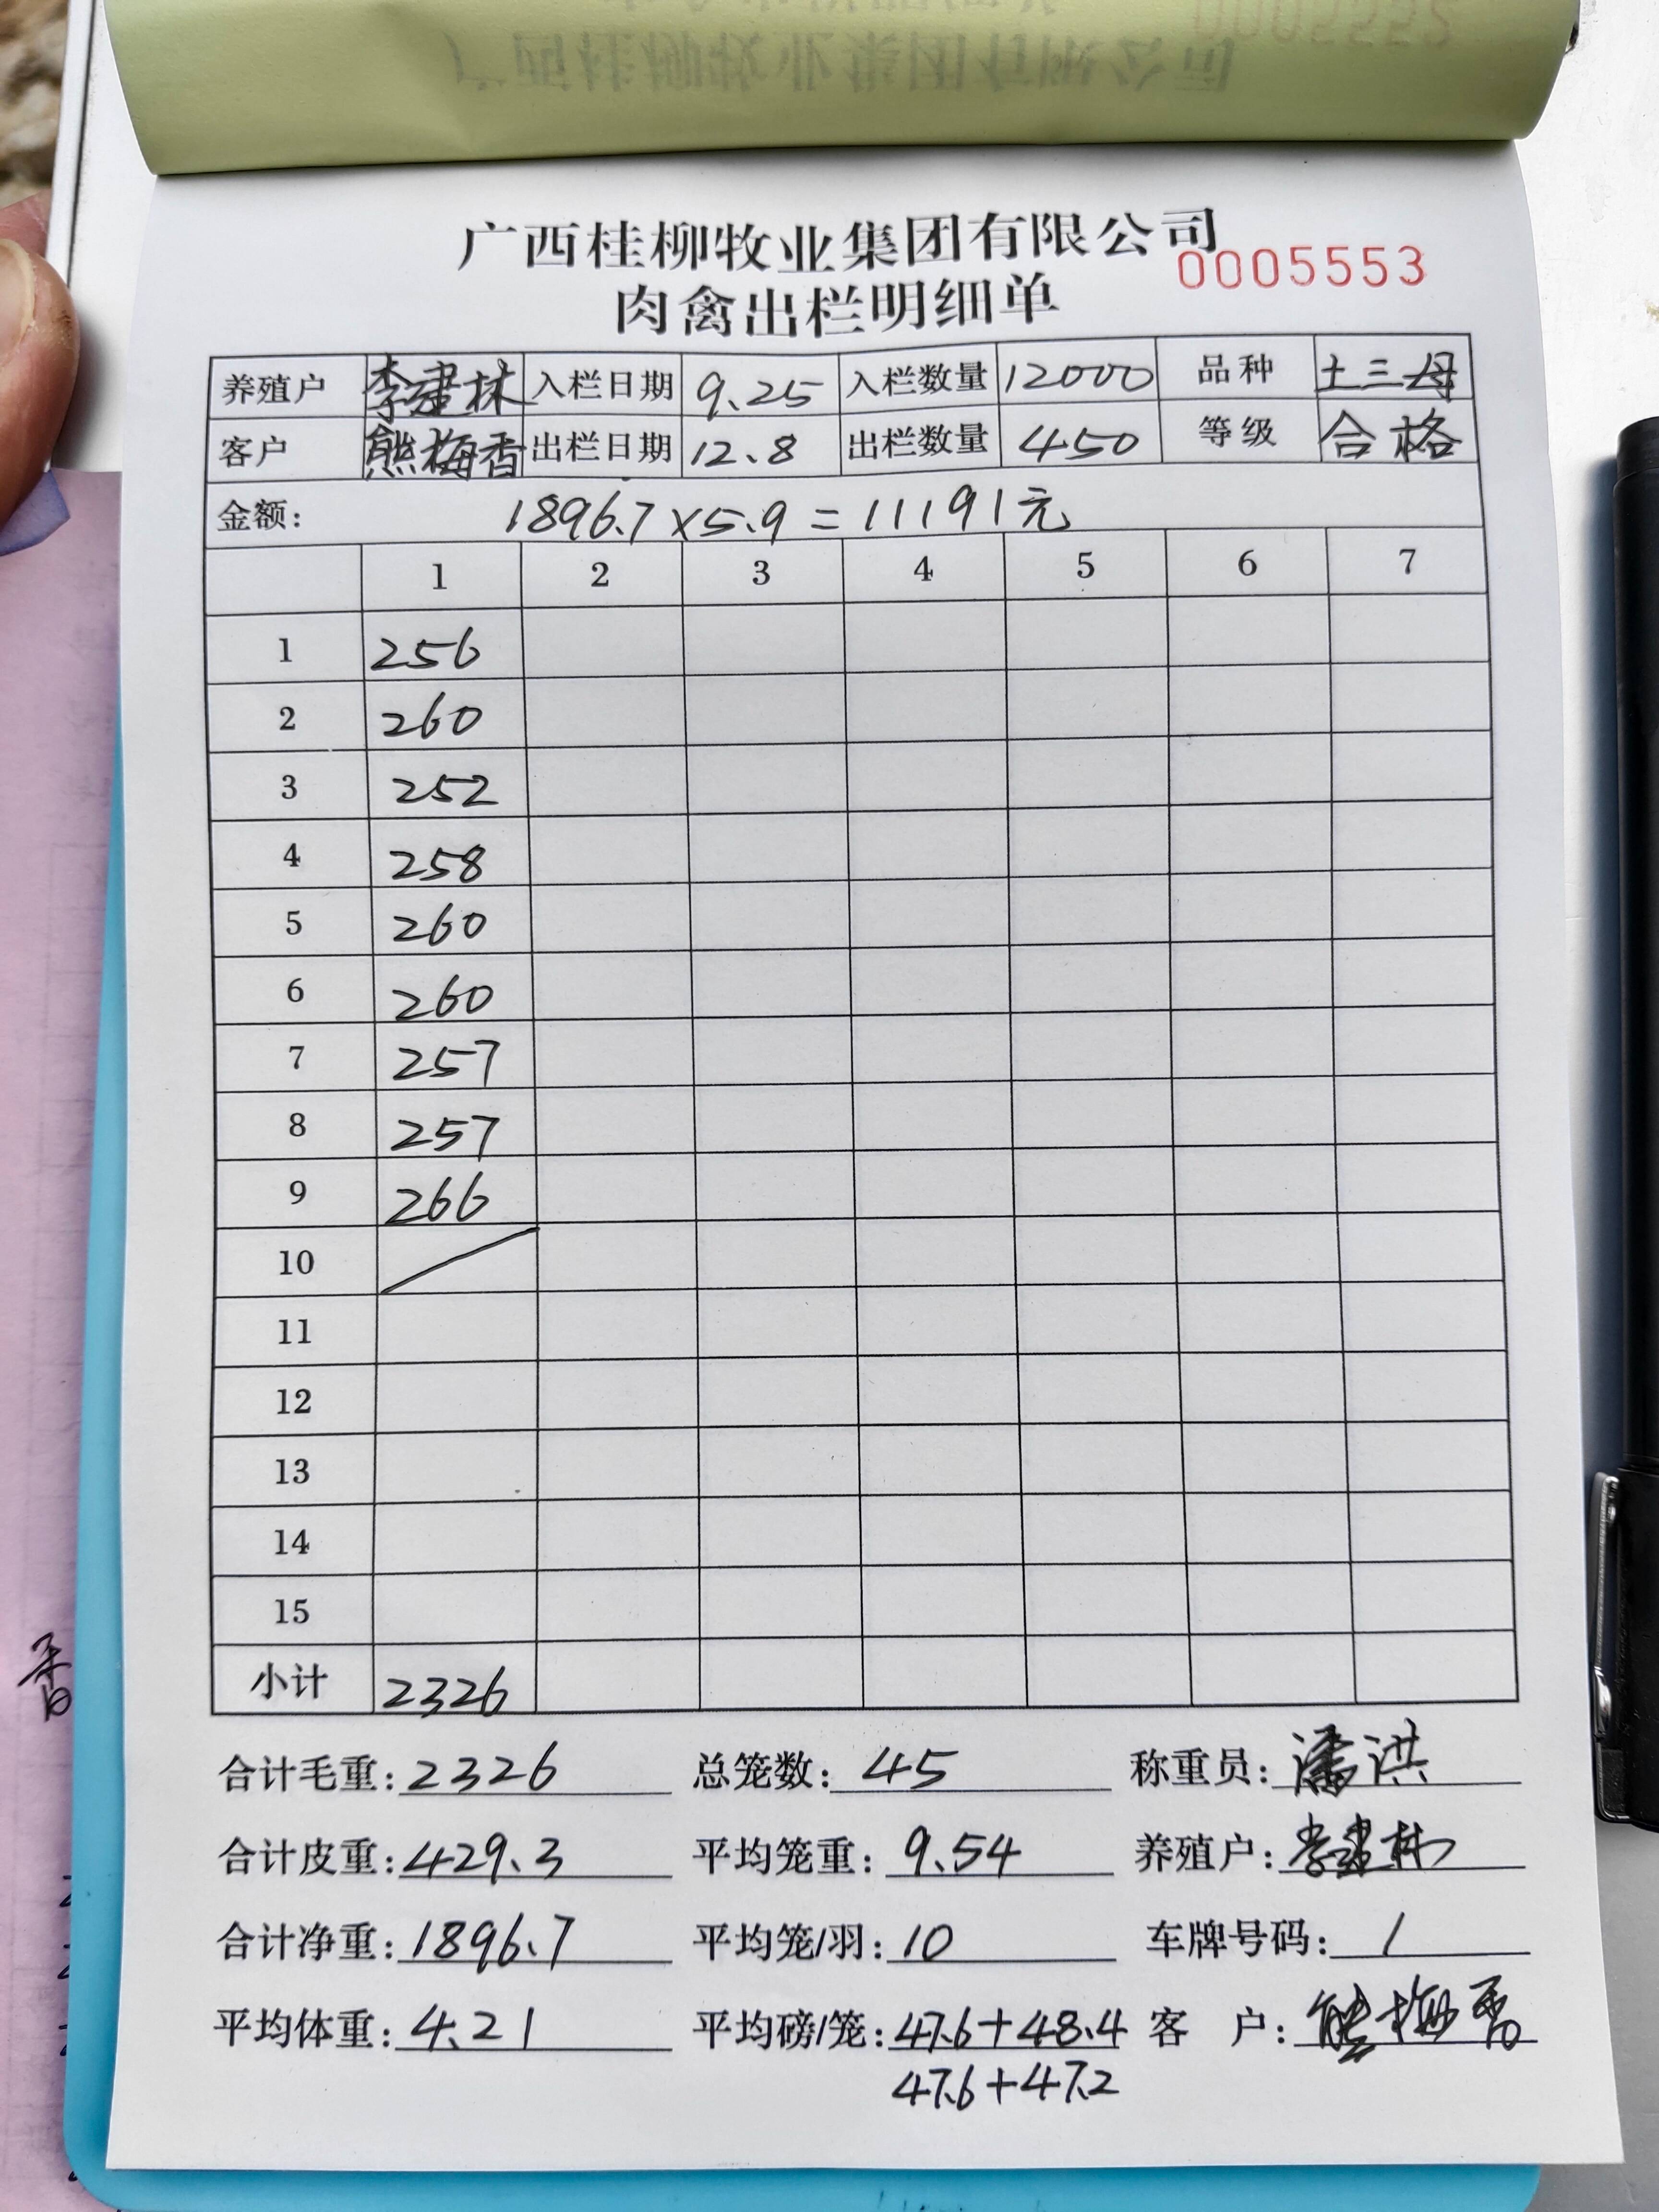 广西桂柳牧业集团有限公司
0005553
肉禽出栏明细单
养殖户 李建林 入栏日期 9.25 入栏数量 12000 品种 土三母
客户 熊梅香 出栏日期 12.8 出栏数量 450 等级 合格
金额: 1896.7×5.9=11191元
1 2 3 4 5 6 7
1 256
2 260
3 252
4 258
5 260
6 260
7 257
8 257
9 266
10
11
12
13
14
15
小计 2326
合计毛重:2326 总笼数:45 称重员:潘洪
合计皮重:429.3 平均笼重:9.54 养殖户:李建林
合计净重:1896.7 平均笼/羽:10 车牌号码:/
平均体重:4.21 平均磅/笼:47.6+48.4 客 户:熊梅香
47.6+47.2
香